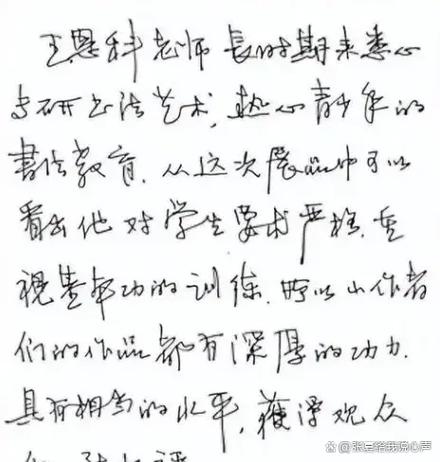 王恩科老师長时期来悉心
专研书法艺术，热心青少年的
書法教育．从这次展品中可以
看出他对学生要求严格．重
視基本功的训练．所以小作者
们的作品都有深厚的功力．
具有相当的水平，獲得观众
的
@张宣容我说心声